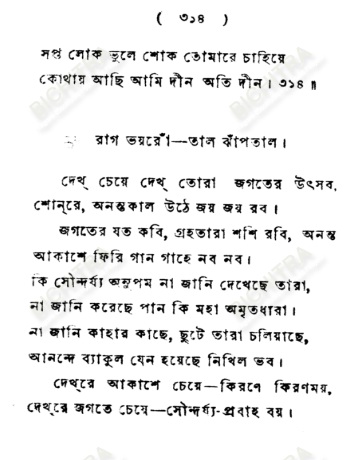 ( ৩১৪ )
সপ্ত লোক ভুলে শোক তোমারে চাহিয়ে
কোথায় আছি আমি দীন অতি দীন। ৩১৪॥
রাগ ভয়রোঁ—তাল ঝাঁপতাল।
দেখ্ চেয়ে দেখ্ তোরা জগতের উৎসব,
শোন্‌রে, অনন্তকাল উঠে জয় জয় রব।
জগতের যত কবি, গ্রহতারা শশি রবি, অনন্ত
আকাশে ফিরি গান গাহে নব নব।
কি সৌন্দর্য্য অনুপম না জানি দেখেছে তারা,
না জানি করেছে পান কি মহা অমৃতধারা।
না জানি কাহার কাছে, ছুটে তারা চলিয়াছে,
আনন্দে ব্যাকুল যেন হয়েছে নিখিল ভব।
দেখ্‌রে আকাশে চেয়ে—কিরণে কিরণময়,
দেখ্‌রে জগতে চেয়ে—সৌন্দর্য্য-প্রবাহ বয়।